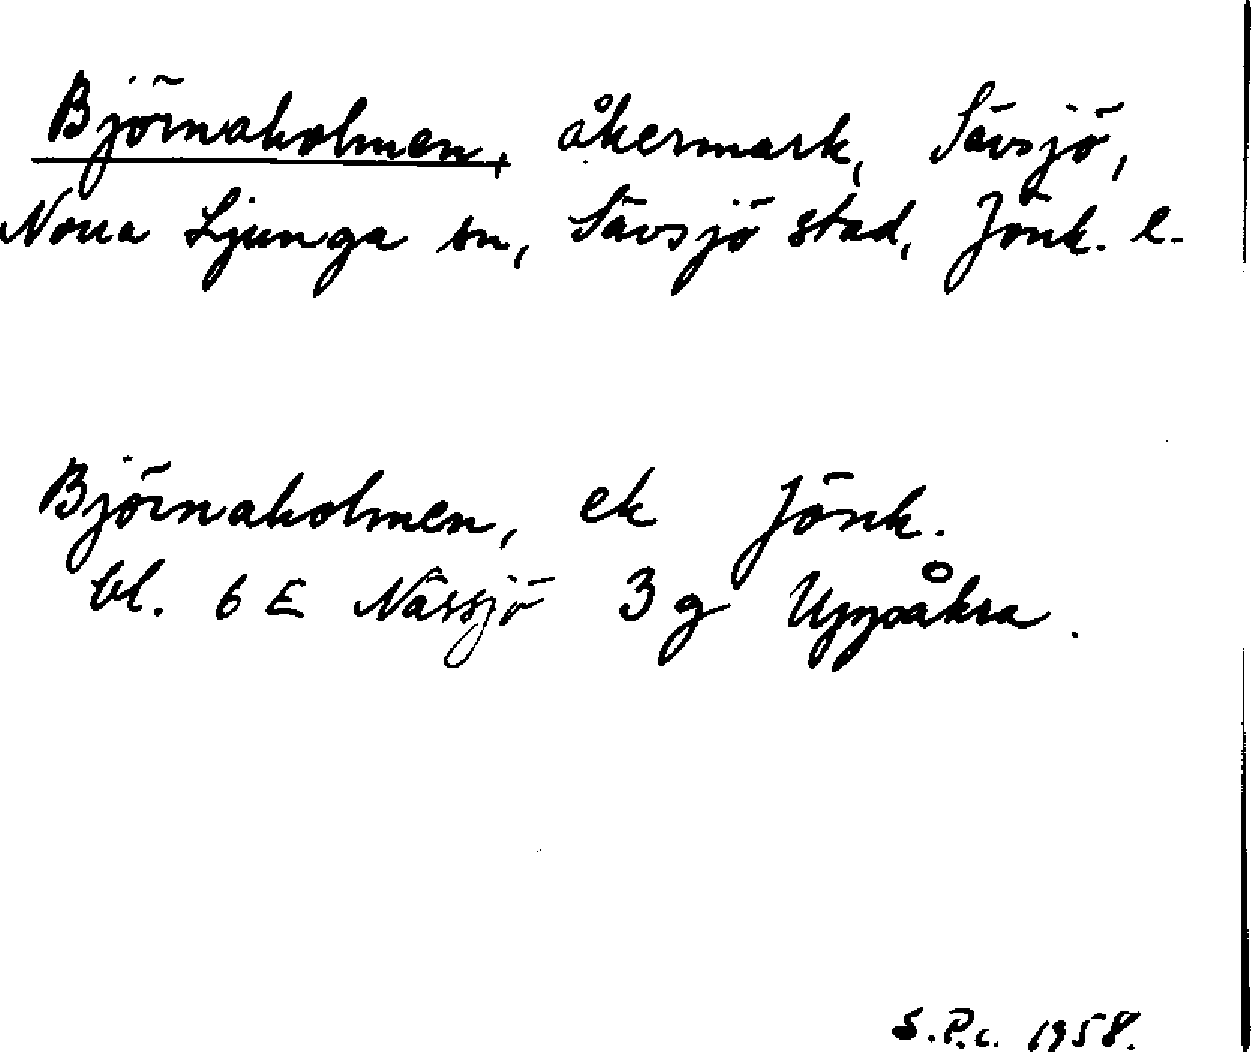 Björnaholmen, åkermark, Sävsjö,
Norra Ljunga sn, Sävsjö stad, Jönk. l.
Björnaholmen, ek Jönk.
bl. 6 E Nässjö 3 g Uppåkra.
S.P.c. 1958.